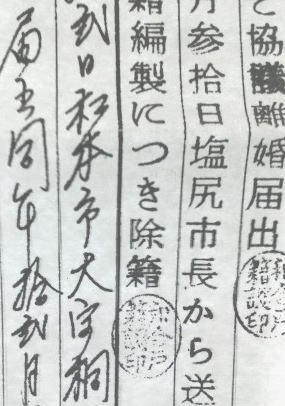 と協議離婚届出
月参拾日塩尻市長から送
籍編製につき除籍
弐日松本市大字桐
届出同年拾弐月